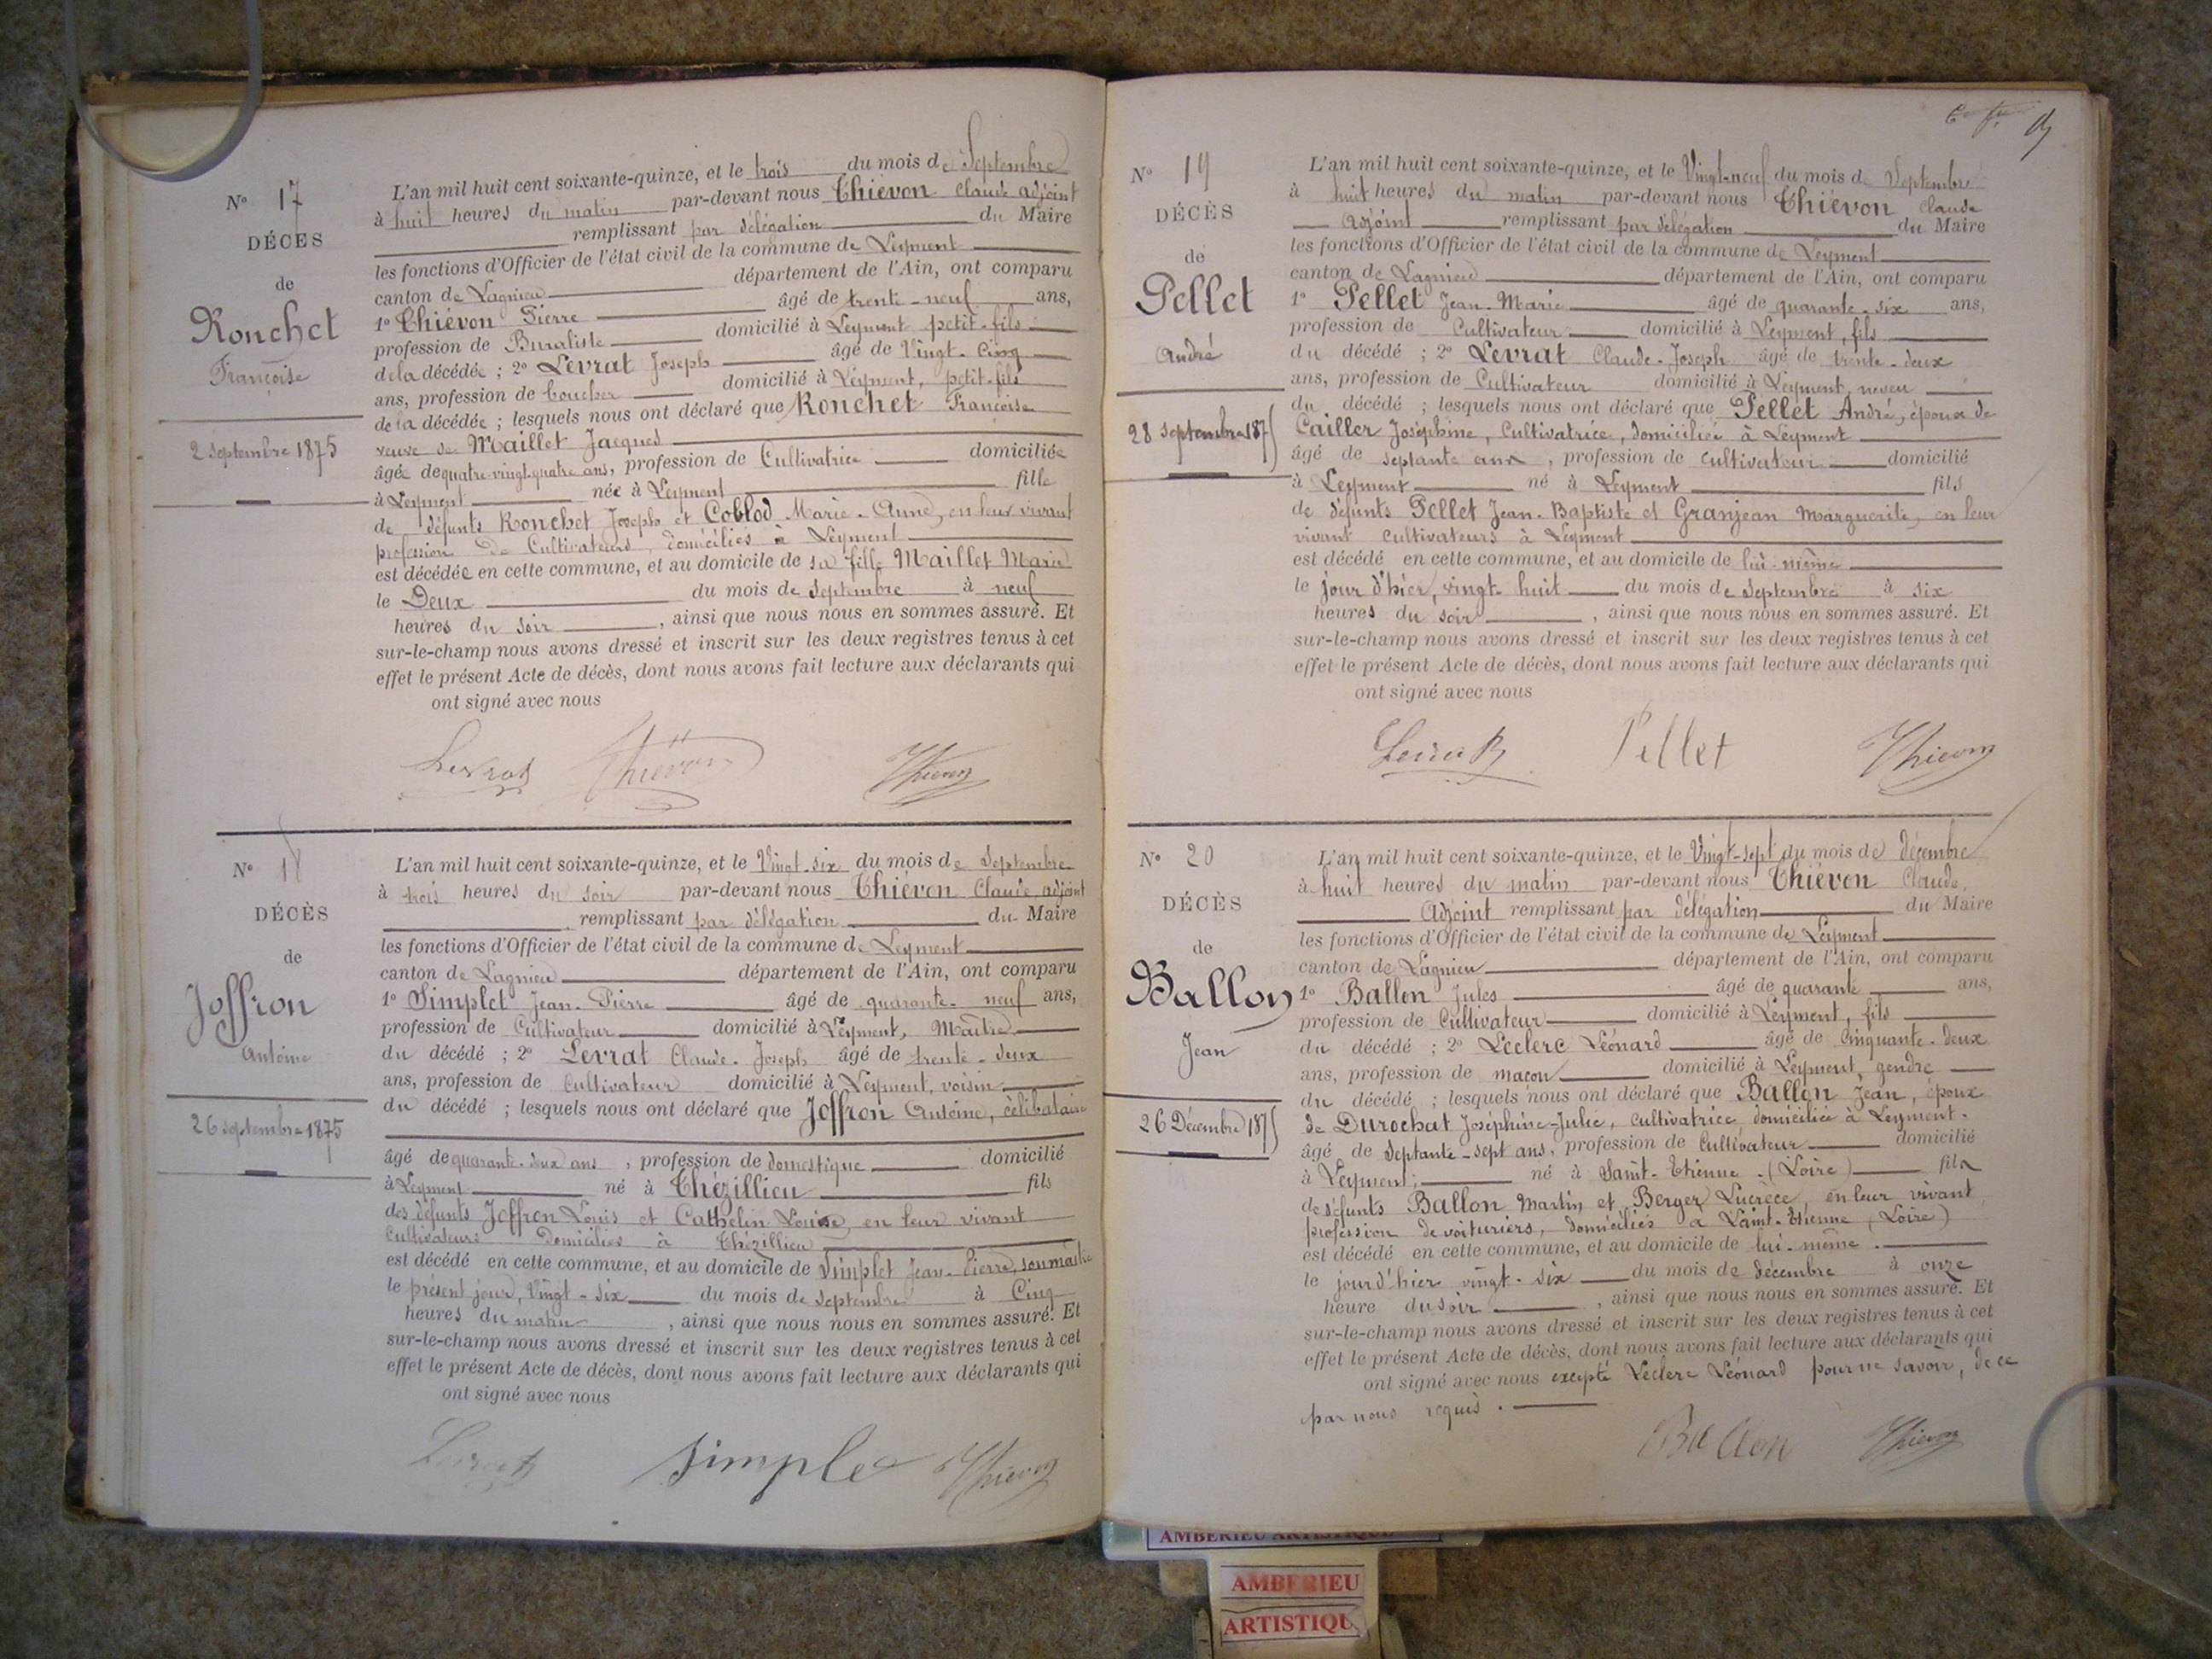 N° 17
DÉCÈS
de
Ronchet
Françoise
2 septembre 1875
L'an mil huit cent soixante-quinze, et le trois du mois de Septembre
à huit heures du matin par-devant nous Thiévon Claude adjoint
remplissant par délégation du Maire
les fonctions d'Officier de l'état civil de la commune de Leyment
canton de Lagnieu département de l'Ain, ont comparu
1° Thiévon Pierre âgé de trente-neuf ans,
profession de Buraliste domicilié à Leyment petit-fils
de la décédée ; 2° Levrat Joseph âgé de Vingt-Cinq
ans, profession de boucher domicilié à Leyment, petit-fils
de la décédée ; lesquels nous ont déclaré que Ronchet Françoise
veuve de Maillet Jacques
âgée de quatre-vingt-quatre ans, profession de Cultivatrice domiciliée
à Leyment née à Leyment fille
de défunts Ronchet Joseph et Coblod Marie-Anne, en leur vivant
profession de Cultivateurs, domiciliés à Leyment
est décédée en cette commune, et au domicile de sa fille Maillet Marie
le Deux du mois de Septembre à neuf
heures du soir, ainsi que nous nous en sommes assuré. Et
sur-le-champ nous avons dressé et inscrit sur les deux registres tenus à cet
effet le présent Acte de décès, dont nous avons fait lecture aux déclarants qui
ont signé avec nous
Levrat Thiévon Thievon
N° 18
DÉCÈS
de
Joffron
Antoine
26 septembre 1875
L'an mil huit cent soixante-quinze, et le Vingt-six du mois de Septembre
à trois heures du soir par-devant nous Thiévon Claude, adjoint
remplissant par délégation du Maire
les fonctions d'Officier de l'état civil de la commune de Leyment
canton de Lagnieu département de l'Ain, ont comparu
1° Simplet Jean-Pierre âgé de quarante-neuf ans,
profession de Cultivateur domicilié à Leyment, Maître
du décédé ; 2° Levrat Claude-Joseph âgé de trente-deux
ans, profession de Cultivateur domicilié à Leyment, voisin
du décédé ; lesquels nous ont déclaré que Joffron Antoine, célibataire
âgé de quarante-deux ans, profession de domestique domicilié
à Leyment né à Thézillieu fils
des défunts Joffron Louis et Cathelin Louise, en leur vivant
Cultivateurs domiciliés à Thézillieu
est décédé en cette commune, et au domicile de Simplet Jean-Pierre, son maître
le présent jour, Vingt-six du mois de Septembre à Cinq
heures du matin, ainsi que nous nous en sommes assuré. Et
sur-le-champ nous avons dressé et inscrit sur les deux registres tenus à cet
effet le présent Acte de décès, dont nous avons fait lecture aux déclarants qui
ont signé avec nous
Levrat Simplet Thievon
N° 19
DÉCÈS
de
Pellet
André
28 septembre 1875
L'an mil huit cent soixante-quinze, et le Vingt-neuf du mois de Septembre
à huit heures du matin par-devant nous Thiévon Claude
Adjoint remplissant par délégation du Maire
les fonctions d'Officier de l'état civil de la commune de Leyment
canton de Lagnieu département de l'Ain, ont comparu
1° Pellet Jean-Marie âgé de quarante-six ans,
profession de Cultivateur domicilié à Leyment, fils
du décédé ; 2° Levrat Claude-Joseph âgé de trente-deux
ans, profession de Cultivateur domicilié à Leyment, neveu
du décédé ; lesquels nous ont déclaré que Pellet André, époux de
Cailler Joséphine, Cultivatrice, domiciliée à Leyment
âgé de septante ans, profession de cultivateur domicilié
à Leyment né à Leyment fils
de défunts Pellet Jean-Baptiste et Granjean Marguerite, en leur
vivant cultivateurs à Leyment
est décédé en cette commune, et au domicile de lui-même
le jour d'hier, vingt-huit du mois de septembre à six
heures du soir, ainsi que nous nous en sommes assuré. Et
sur-le-champ nous avons dressé et inscrit sur les deux registres tenus à cet
effet le présent Acte de décès, dont nous avons fait lecture aux déclarants qui
ont signé avec nous
Levrat Pellet Thievon
N° 20
DÉCÈS
de
Ballon
Jean
26 Décembre 1875
L'an mil huit cent soixante-quinze, et le Vingt-sept du mois de décembre
à huit heures du matin par-devant nous Thiévon Claude,
Adjoint remplissant par délégation du Maire
les fonctions d'Officier de l'état civil de la commune de Leyment
canton de Lagnieu département de l'Ain, ont comparu
1° Ballon Jules âgé de quarante ans,
profession de Cultivateur domicilié à Leyment, fils
du décédé ; 2° Leclerc Léonard âgé de Cinquante-deux
ans, profession de maçon domicilié à Leyment, gendre
du décédé ; lesquels nous ont déclaré que Ballon Jean, époux
de Durochat Joséphine-Julie, cultivatrice domiciliée à Leyment.
âgé de Septante-sept ans, profession de Cultivateur domicilié
à Leyment, né à Saint-Etienne (Loire) fils
de défunts Ballon Martin et Berger Lucrèce, en leur vivant
profession de voituriers, domiciliés à Saint-Etienne (Loire)
est décédé en cette commune, et au domicile de lui-même.
le jour d'hier vingt-six du mois de décembre à onze
heure du soir, ainsi que nous nous en sommes assuré. Et
sur-le-champ nous avons dressé et inscrit sur les deux registres tenus à cet
effet le présent Acte de décès, dont nous avons fait lecture aux déclarants qui
ont signé avec nous excepté Leclerc Léonard pour ne savoir, de ce
par nous requis.
Ballon Thievon
AMBERIEU ARTISTIQUE
AMBERIEU
ARTISTIQU